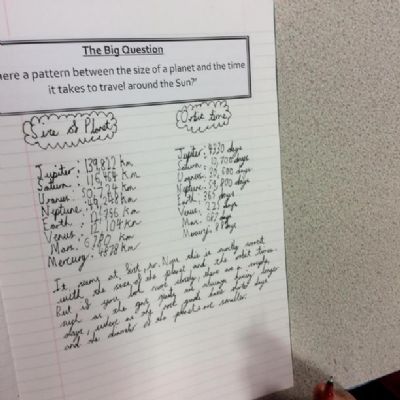 The Big Question
here a pattern between the size of a planet and the time
it takes to travel around the Sun?"
Size of Planet
Orbit time
Jupiter: 139,822 km
Saturn: 116,464 km
Uranus: 50,724 km
Neptune: 49,248 km
Earth: 12,756 km
Venus: 12,104 km
Mars: 6780 km
Mercury: 4878 km
Jupiter: 4330 days
Saturn: 10,700 days
Uranus: 30,600 days
Neptune: 59,800 days
Earth: 365 days
Venus: 225 days
Mars: 687 days
Mercury: 88 days
It seems at first this is mostly correct
with the size of the planet and the orbit times.
But if you look more closely, there are
such as the gas giants always having longer
days,
and the diameter of the planets are smaller.